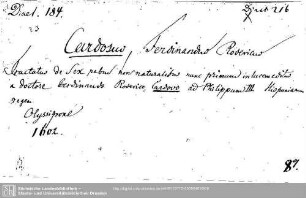 Diaet. 184.
Diaet 216
23
Cardosus, Ferdinandus Rodericus
Tractatus de Sex rebus non naturalibus nunc primum in lucem editus
a doctore Ferdinando Roderico Cardoso ad Philippum III Hispaniarum
regem
Olyssipone
1602.
87.